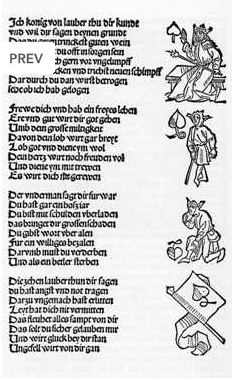 Ich konig von lauber thu dir kunde
vnd wil dir sagen deynen grunde
trinckest guten wein
du offt in sorgen sein
PREV
ch gern vor vngelumpff
cken vnd treibst neuen schimpff
Dar durch du dan wirst betrogen
hab gelogen
Frewe dich vnd hab ein freyes leben
Ere vnd gut wirt dir got geben
Vmb dein grosse mingkeit
Davon dein lob wirt gar breyt
Lob got vnd diene ym wol
Dein hertz wirt noch freuden vol
Vnd diene ym mit trewen
Es wirt dich nit gerewen
Der vnderman sagt dir fur war
Du hast gar ein boß jar
Du bist mit schulden vberladen
das bringt dir grossen schaden
Du gibst wort vber alen
Fur ein williges bezalen
Darumb must du verderben
Vnd als ein betler sterben
Die zehen lauber thun dir sagen
du hast angst vnd not tragen
Darzu vngemach hast erlitten
Leyt hat dich nit vermitten
Das fleuhet alles sampt von dir
Das solt du sicher gelauben mir
Vnd wirt gluck bey dir stan
Vngefell wirt von dir gan